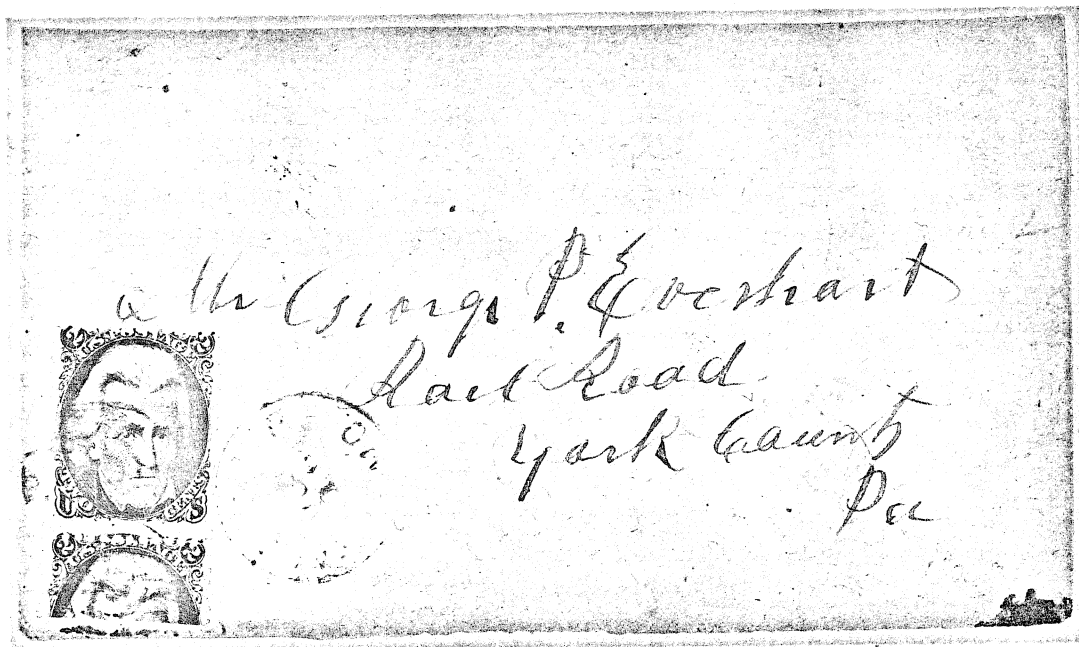 Mr George P. Everhart
Rail Road
York County
Pa
U S